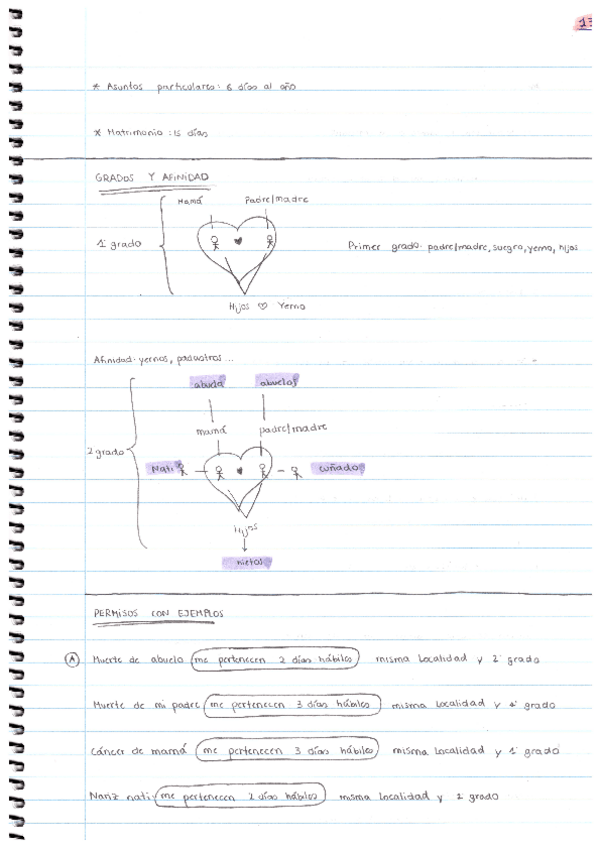 13
* Asuntos particulares: 6 días al año
* Matrimonio: 15 días
GRADOS Y AFINIDAD
Mamá Padre/madre
1º grado
Primer grado: padre/madre, suegro, yerno, hijos
Hijos ♡ Yerno
Afinidad: yernos, padrastros ...
abuela abuelos
mamá padre/madre
2 grado
Nati cuñados
Hijos
nietos
PERMISOS CON EJEMPLOS
A Muerte de abuelo me pertenecen 2 días hábiles misma localidad y 2º grado
Muerte de mi padre me pertenecen 3 días hábiles misma localidad y 1º grado
Cáncer de mamá me pertenecen 3 días hábiles misma localidad y 1º grado
Nariz nati: me pertenecen 2 días hábiles misma localidad y 2 grado